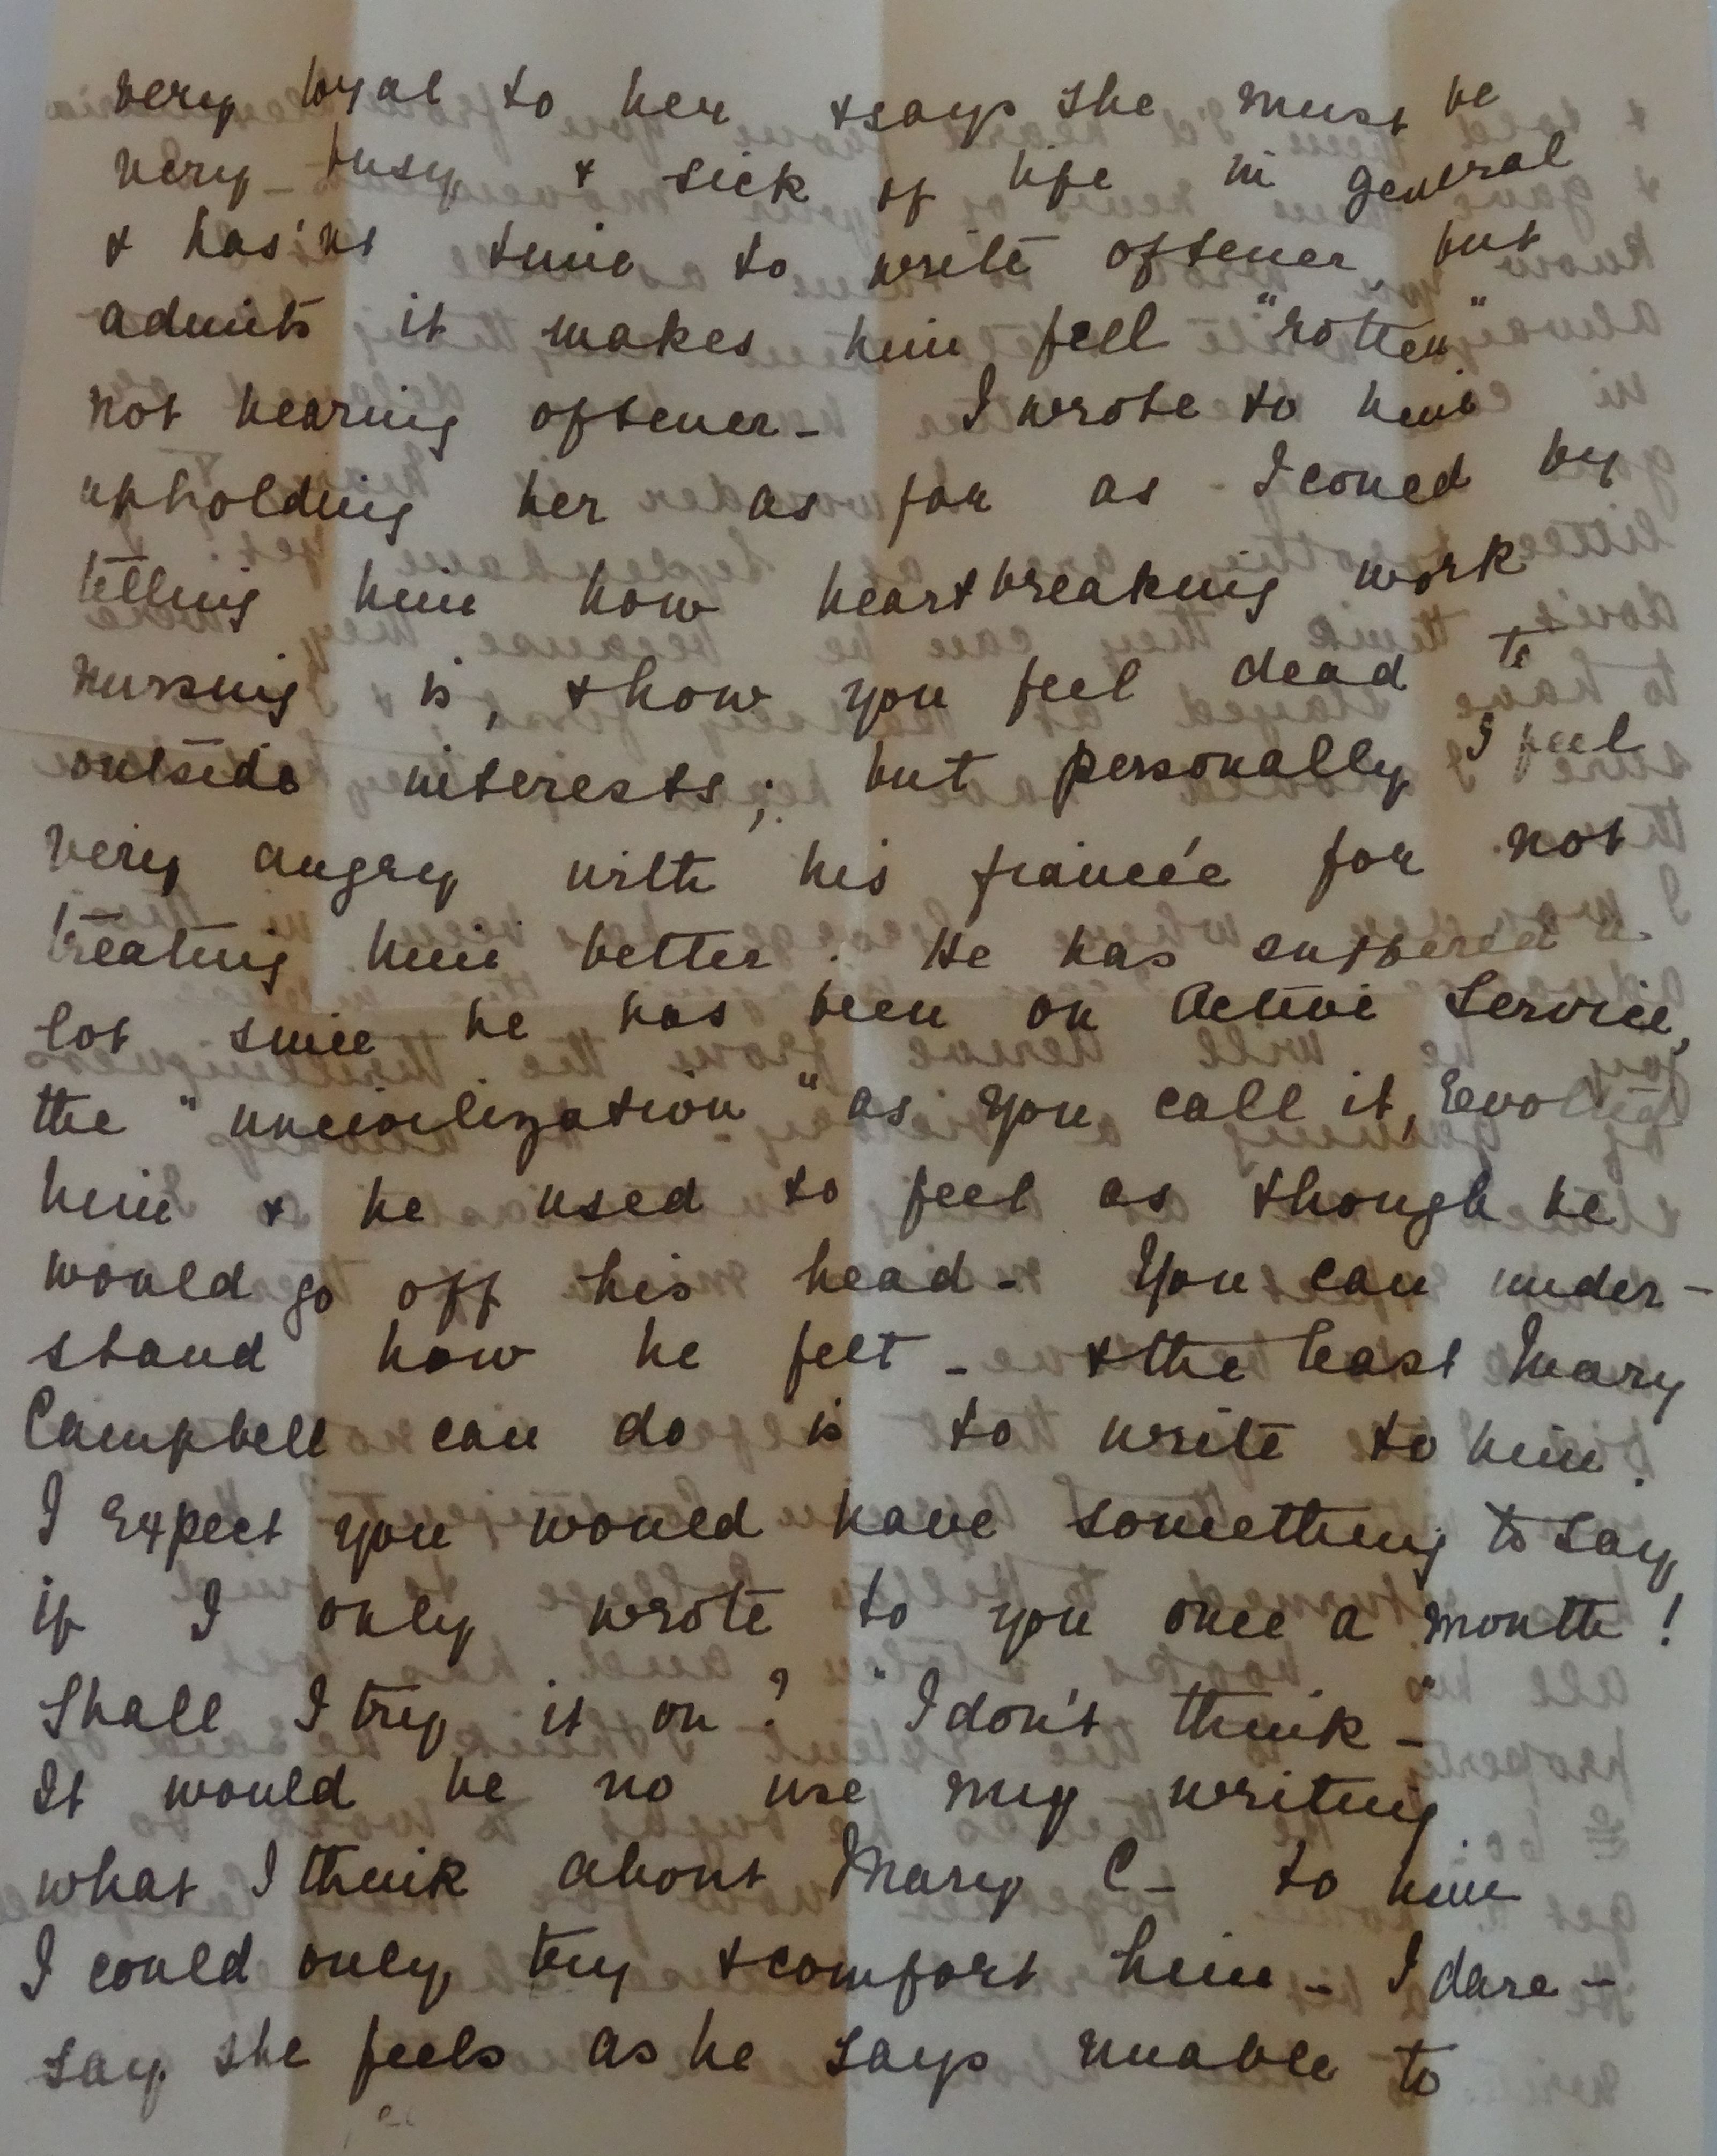 very loyal to her & says she must be
very busy & sick of life in general
& has'nt time to write oftener, but
admits it makes him feel "rotten"
not hearing oftener - I wrote to him
upholding her as far as I could by
telling him how heartbreaking work
nursing is, & how you feel dead to
outside interests; but personally I feel
very angry with his fiancée for not
treating him better. He has suffered a
lot since he has been on Active Service,
the "uncivilization" as you call it, revolted
him & he used to feel as though he
would go off his head - You can under-
stand how he felt - & the least Mary
Campbell can do is to write to him.
I expect you would have something to say
if I only wrote to you once a month!
Shall I try it on? "I don't think -"
It would be no use my writing
what I think about Mary C- to him
I could only try & comfort him - I dare-
say she feels as he says unable to